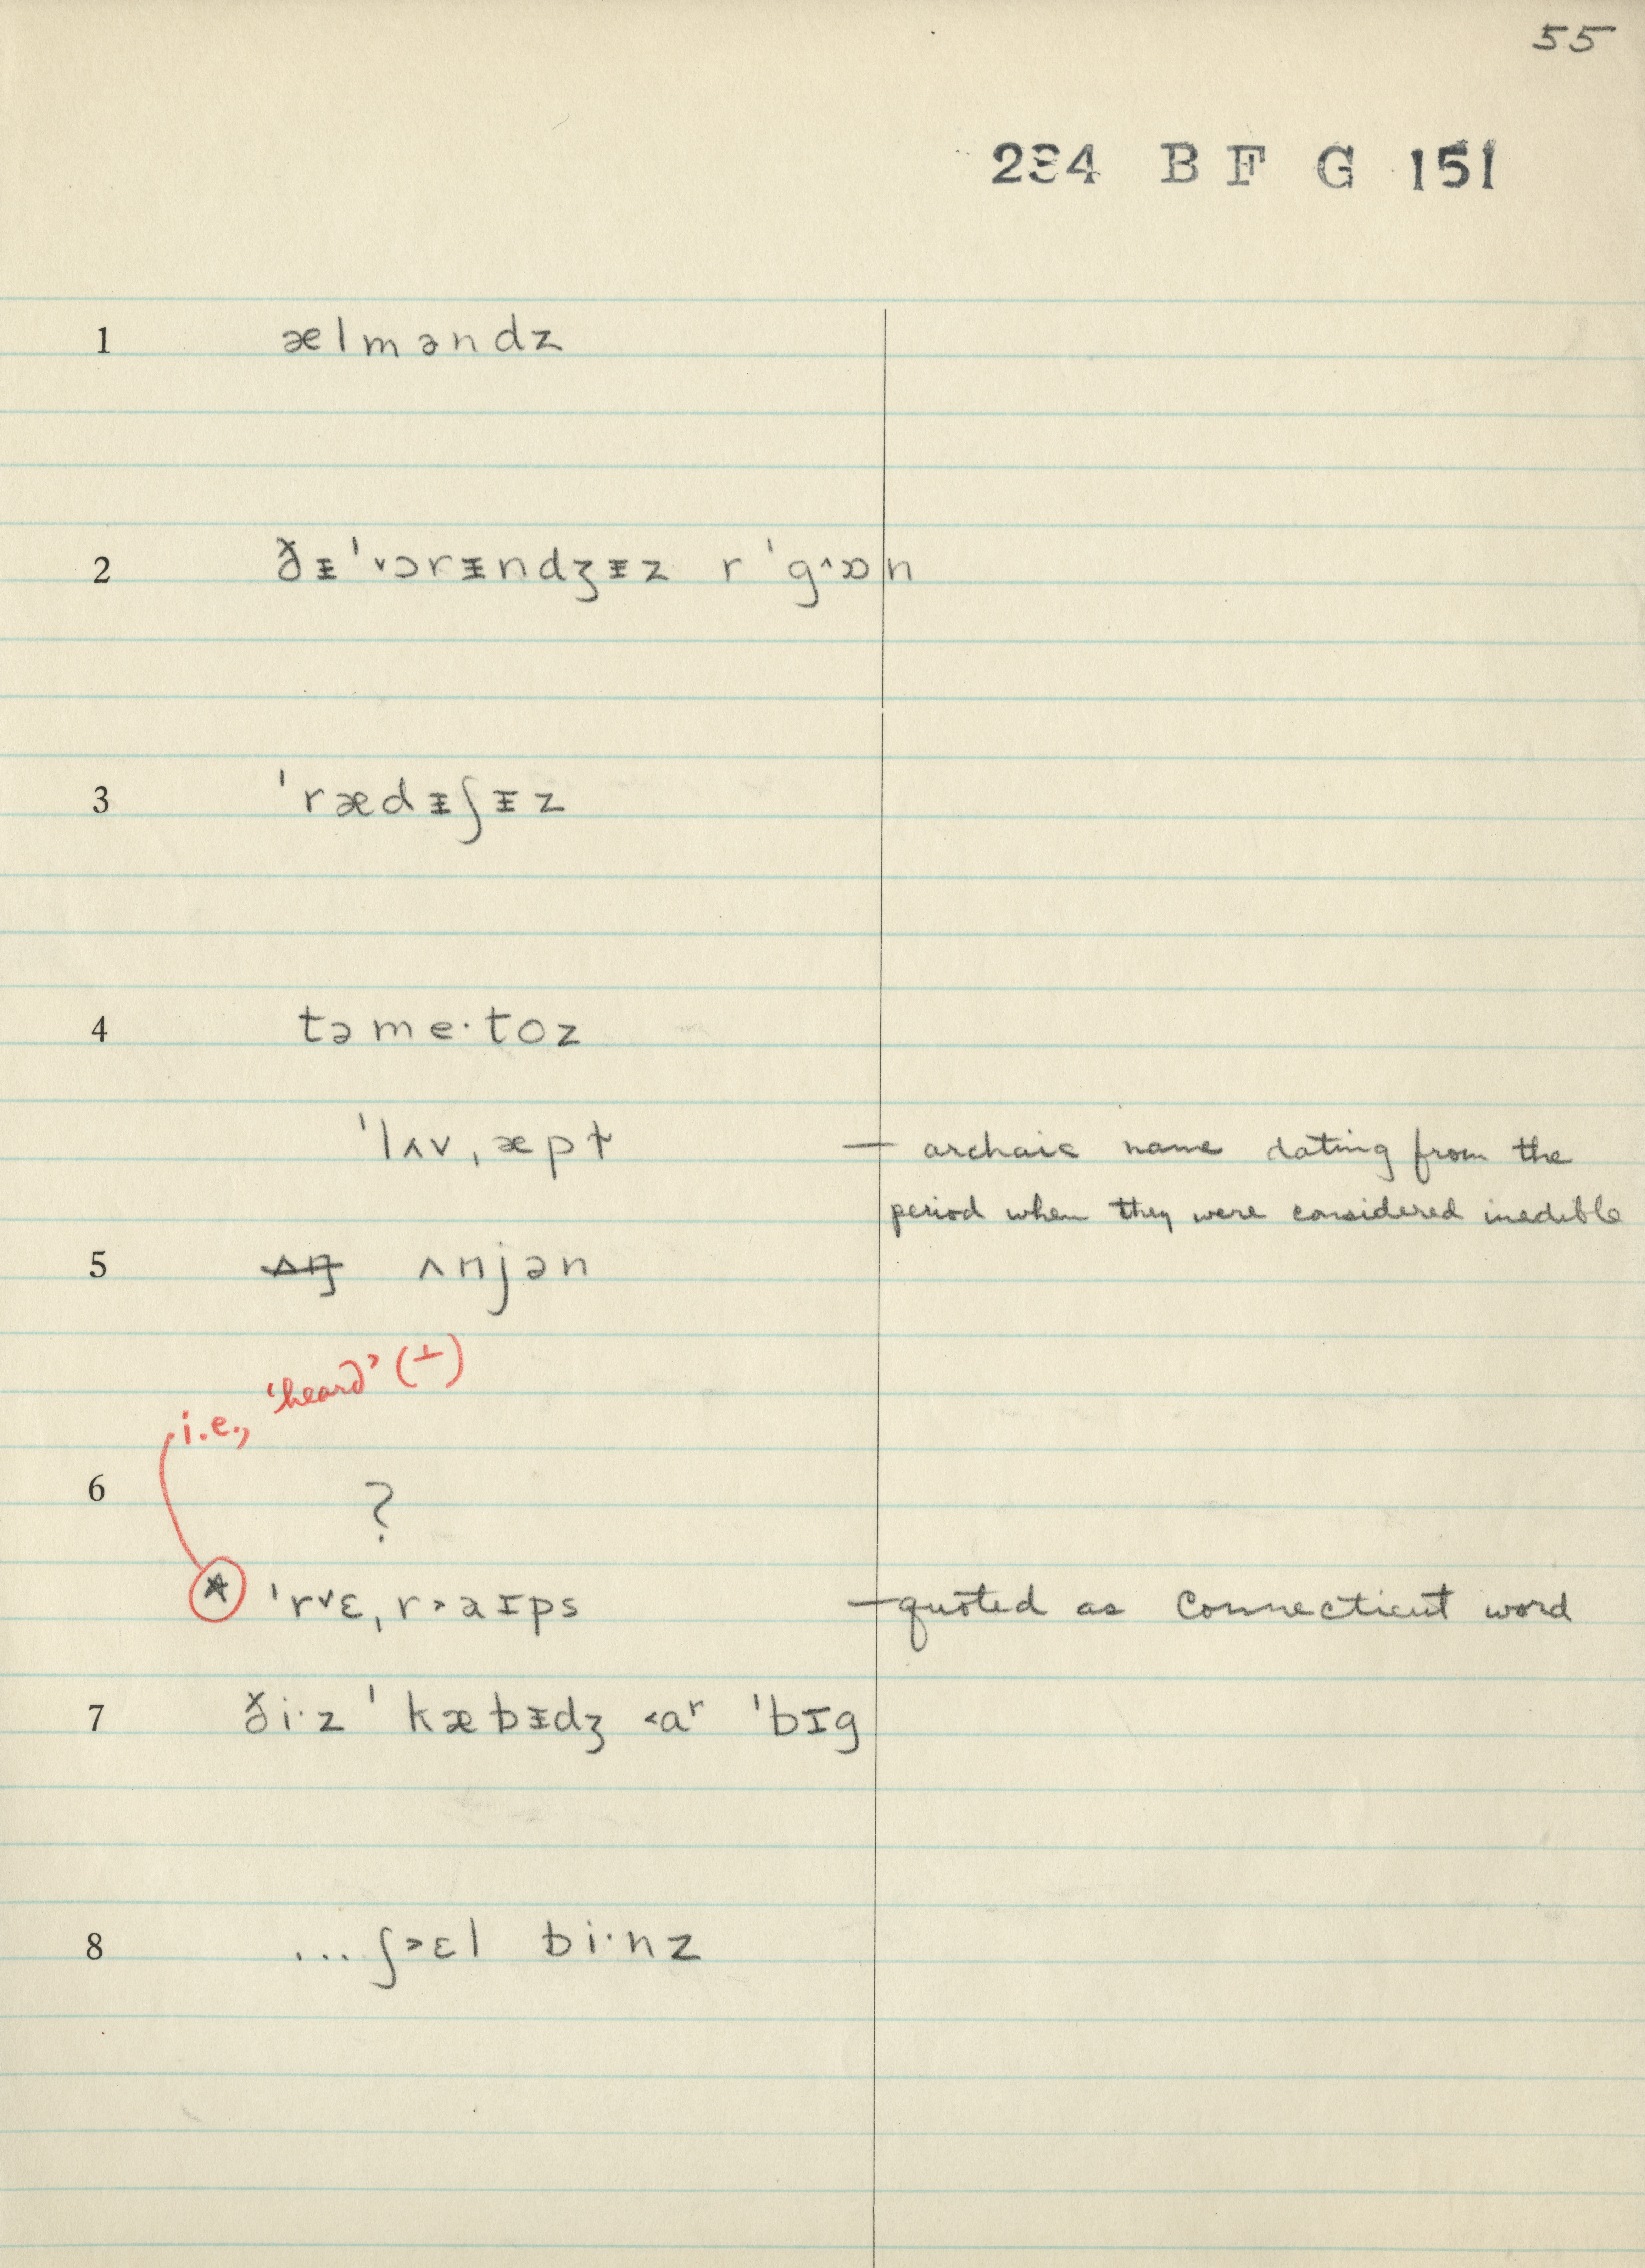 55
234 B F G 151
1 ælməndz
2 ðᵻˈ˅ɔrᵻndʒᵻz r ˈg˄ɒn
3 ˈrædᵻʃᵻz
4 təme·toz
ˈlʌv,æpɫ — archaic name dating from the
period when they were considered inedible
5 ~~ʌŋ~~ ʌnjən
i.e., 'heard' (⊥)
6 ?
* ˈr˅ɛ,r˃aɪps — quoted as Connecticut word
7 ði·z ˈkæbᵻdʒ ˂aʳ ˈbɪg
8 ...ʃ˃ɛl bi·nz